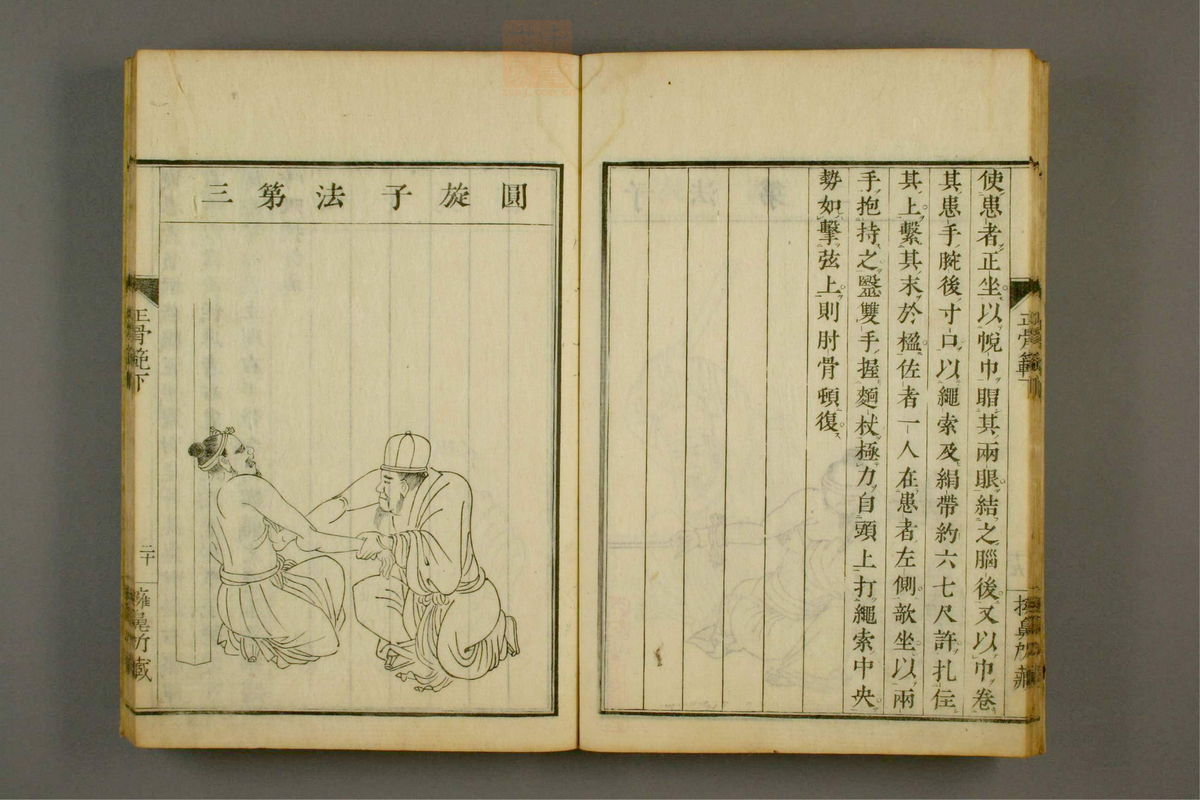 使患者正坐以帨巾眼其兩眼結之腦後又以巾卷
其患手腕後寸口以繩索及絹帶約六七尺許扎住
其上繫其末於楹佐者一人在患者左側欹坐以兩
手抱持之毉雙手握麵杖極力自頭上打繩索中央
勢如擊弦上則肘骨頓復
正骨範下
圓旋子法第三
正骨範下
二十